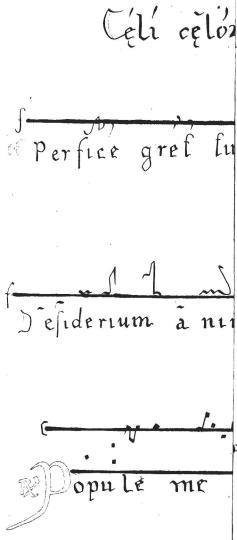 Cęlí cęló
Perfice gres su
Desiderium ani
Popule me